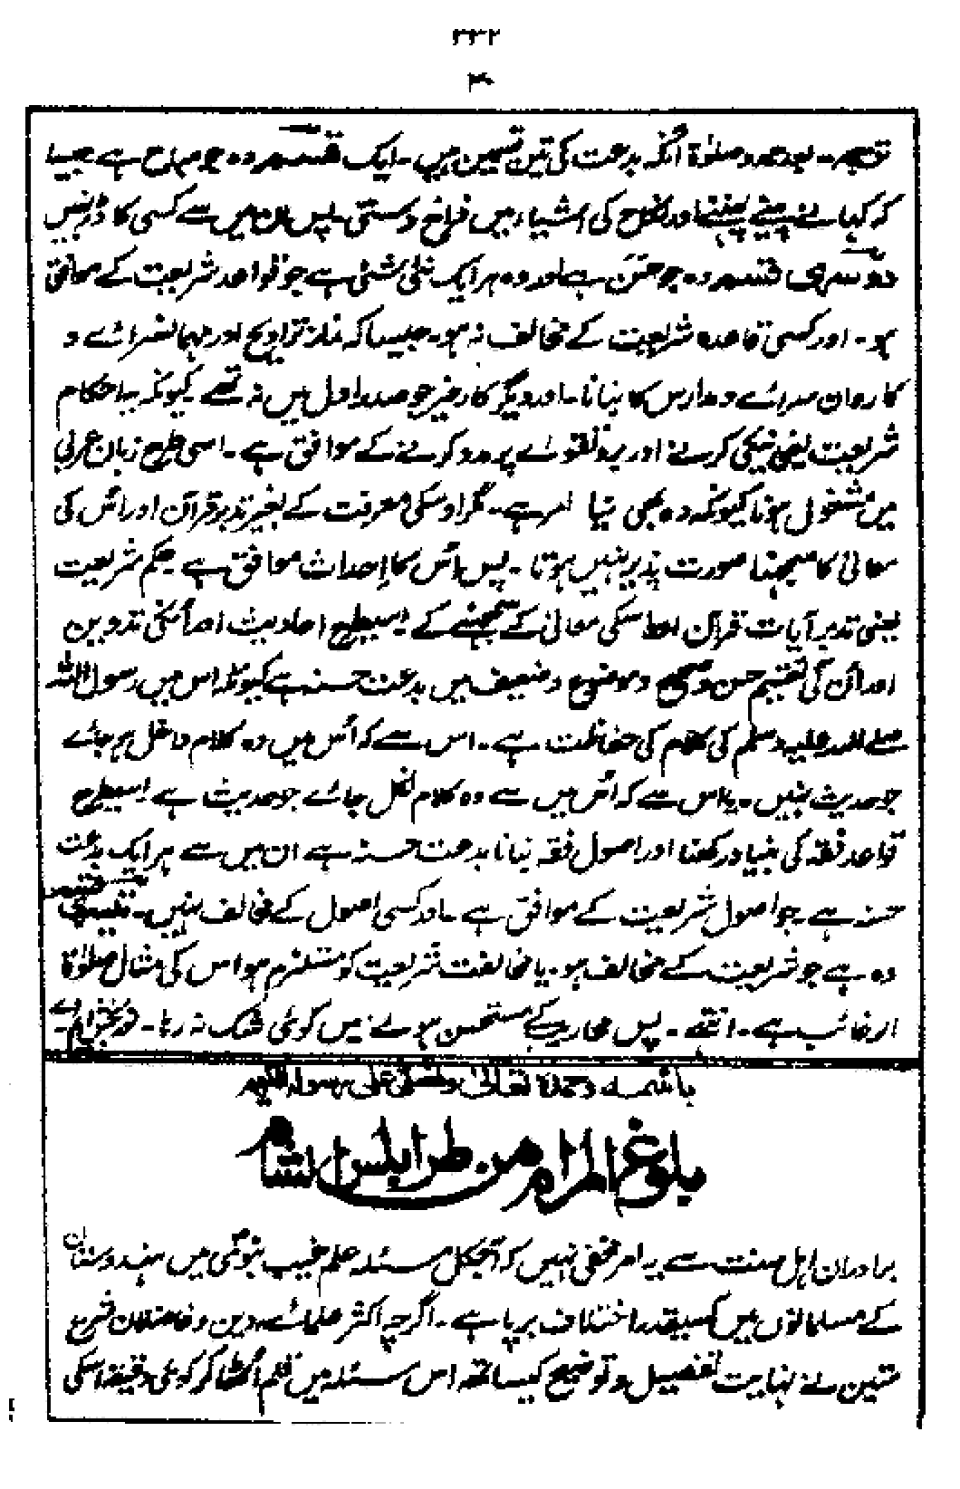 ۳۳۲
۳۰
ترجمہ۔ بعد حمد و صلوٰۃ آنکہ بدعت کی تین قسمیں ہیں۔ ایک قسم وہ جو مباح ہے جیسا
کہ کھانے پینے پہننے اور نکاح کی اشیاء میں فراخ دستی۔ پس ان میں سے کسی کا ڈر نہیں
دوسری قسم وہ جو حسن ہے اور وہ ہر ایک نئی شئی ہے جو قواعد شریعت کے موافق
ہو۔ اور کسی قاعدہ شریعت کے مخالف نہ ہو۔ جیسا کہ نماز تراویح اور مہمانسرائے و
کاروان سرائے و مدارس کا بنانا۔ اور دیگر کار خیر جو صدر اول میں نہ تھے کیونکہ یہ احکام
شریعت یعنی نیکی کرنے اور بر و تقوے پر مدد کرنے کے موافق ہے۔ اسی طرح زبان عربی
میں مشغول ہونا کیونکہ وہ بھی نیا امر ہے۔ مگر اوسکی معرفت کے بغیر تدبر قرآن اور اُس کی
معانی کا سمجہنا صورت پذیر نہیں ہوتا۔ پس اُس کا احداث موافق ہے حکم شریعت
یعنی تدبر آیات قرآن اور اسکی معانی کے سمجھنے کے اسیطرح احادیث اور اُنکی تدوین
اور اُن کی تقسیم حسن و صحیح و موضوع و ضعیف میں بدعت حسنہ ہے کیونکہ اس میں رسول اللہ
صلے اللہ علیہ وسلم کی کلام کی حفاظت ہے۔ اس سے کہ اُس میں وہ کلام داخل ہو جائے
جو حدیث نہیں۔ یا اس سے کہ اُس میں سے وہ کلام نکل جائے جو حدیث ہے اسیطرح
قواعد فقہ کی بنیاد رکھنا اور اصول فقہ بنانا بدعت حسنہ ہے ان میں سے ہر ایک بدعت
حسنہ ہے جو اصول شریعت کے موافق ہے۔ اور کسی اصول کے مخالف نہیں۔ تیسری قسم
وہ ہے جو شریعت کے مخالف ہو۔ یا مخالفت شریعت کو مستلزم ہو اس کی مثال صلوٰۃ
الرغائب ہے۔ انتہے۔ پس محاریب کے مستحسن ہونے میں کوئی شک نہ رہا۔
باسمہ وحمدہ تعالیٰ ونصلی علی رسولہ الکریم
بلوغ المرام من طرابلس الشام
برادران اہل سنت سے یہ امر مخفی نہیں کہ آجکل مسئلہ علم غیب نبوی میں ہندوستان
کے مسلمانوں میں کسیقدر اختلاف برپا ہے۔ اگرچہ اکثر علمائے دین و فاضلان شرع
متین نے نہایت تفصیل و توضیح کیساتھ اس مسئلہ میں قلم اُٹھا کر کوئی دقیقہ اسکی